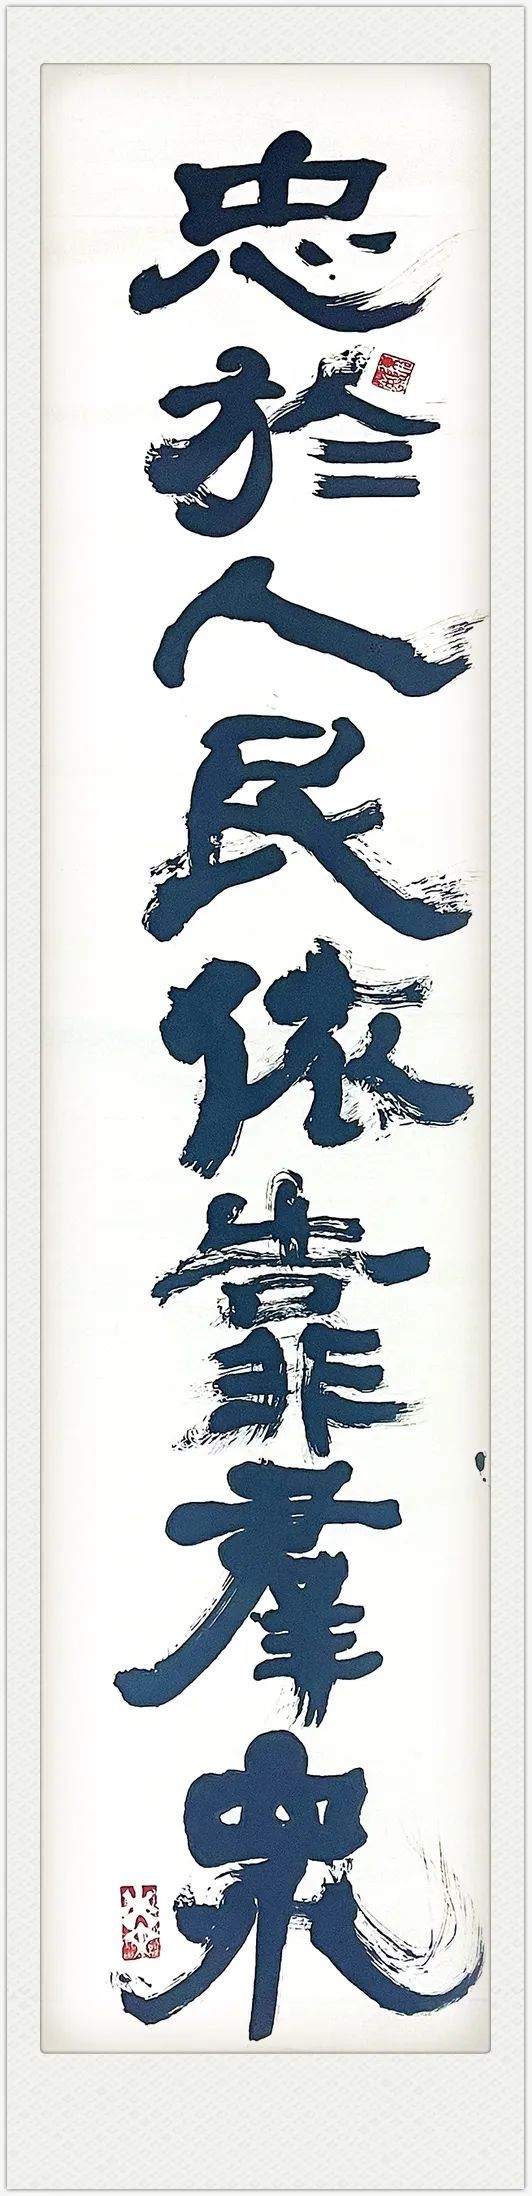 忠於人民依靠羣衆